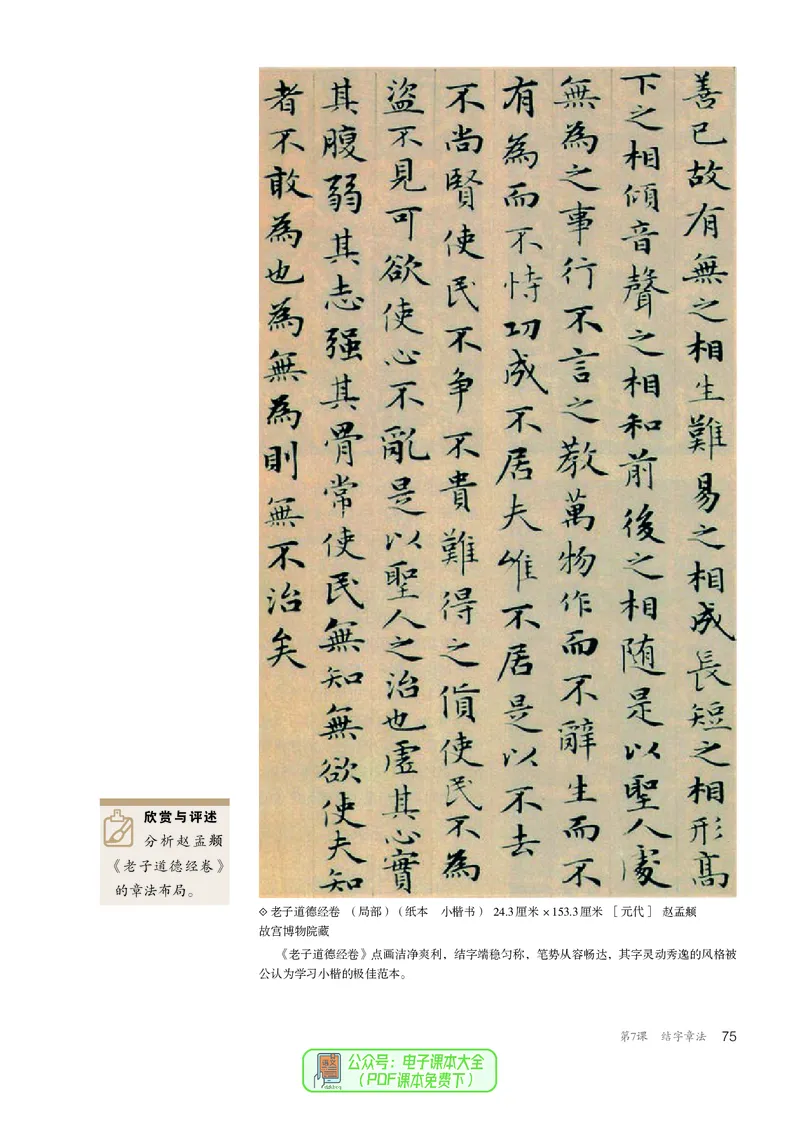 善已故有無之相生難易之相成長短之相形高
下之相傾音聲之相和前後之相随是以聖人處
無為之事行不言之教萬物作而不辭生而不
有為而不恃功成不居夫唯不居是以不去
不尚賢使民不争不貴難得之貨使民不為
盜不見可欲使心不亂是以聖人之治也虚其心實
其腹弱其志强其骨常使民無知無欲使夫知
者不敢為也為無為則無不治矣
欣赏与评述
分析赵孟頫
《老子道德经卷》
的章法布局。
老子道德经卷 （局部）（纸本　小楷书） 24.3厘米×153.3厘米 ［元代］ 赵孟頫
故宫博物院藏
《老子道德经卷》点画洁净爽利，结字端稳匀称，笔势从容畅达，其字灵动秀逸的风格被
公认为学习小楷的极佳范本。
第7课　结字章法　75
语文
公众号：电子课本大全
（PDF课本免费下）